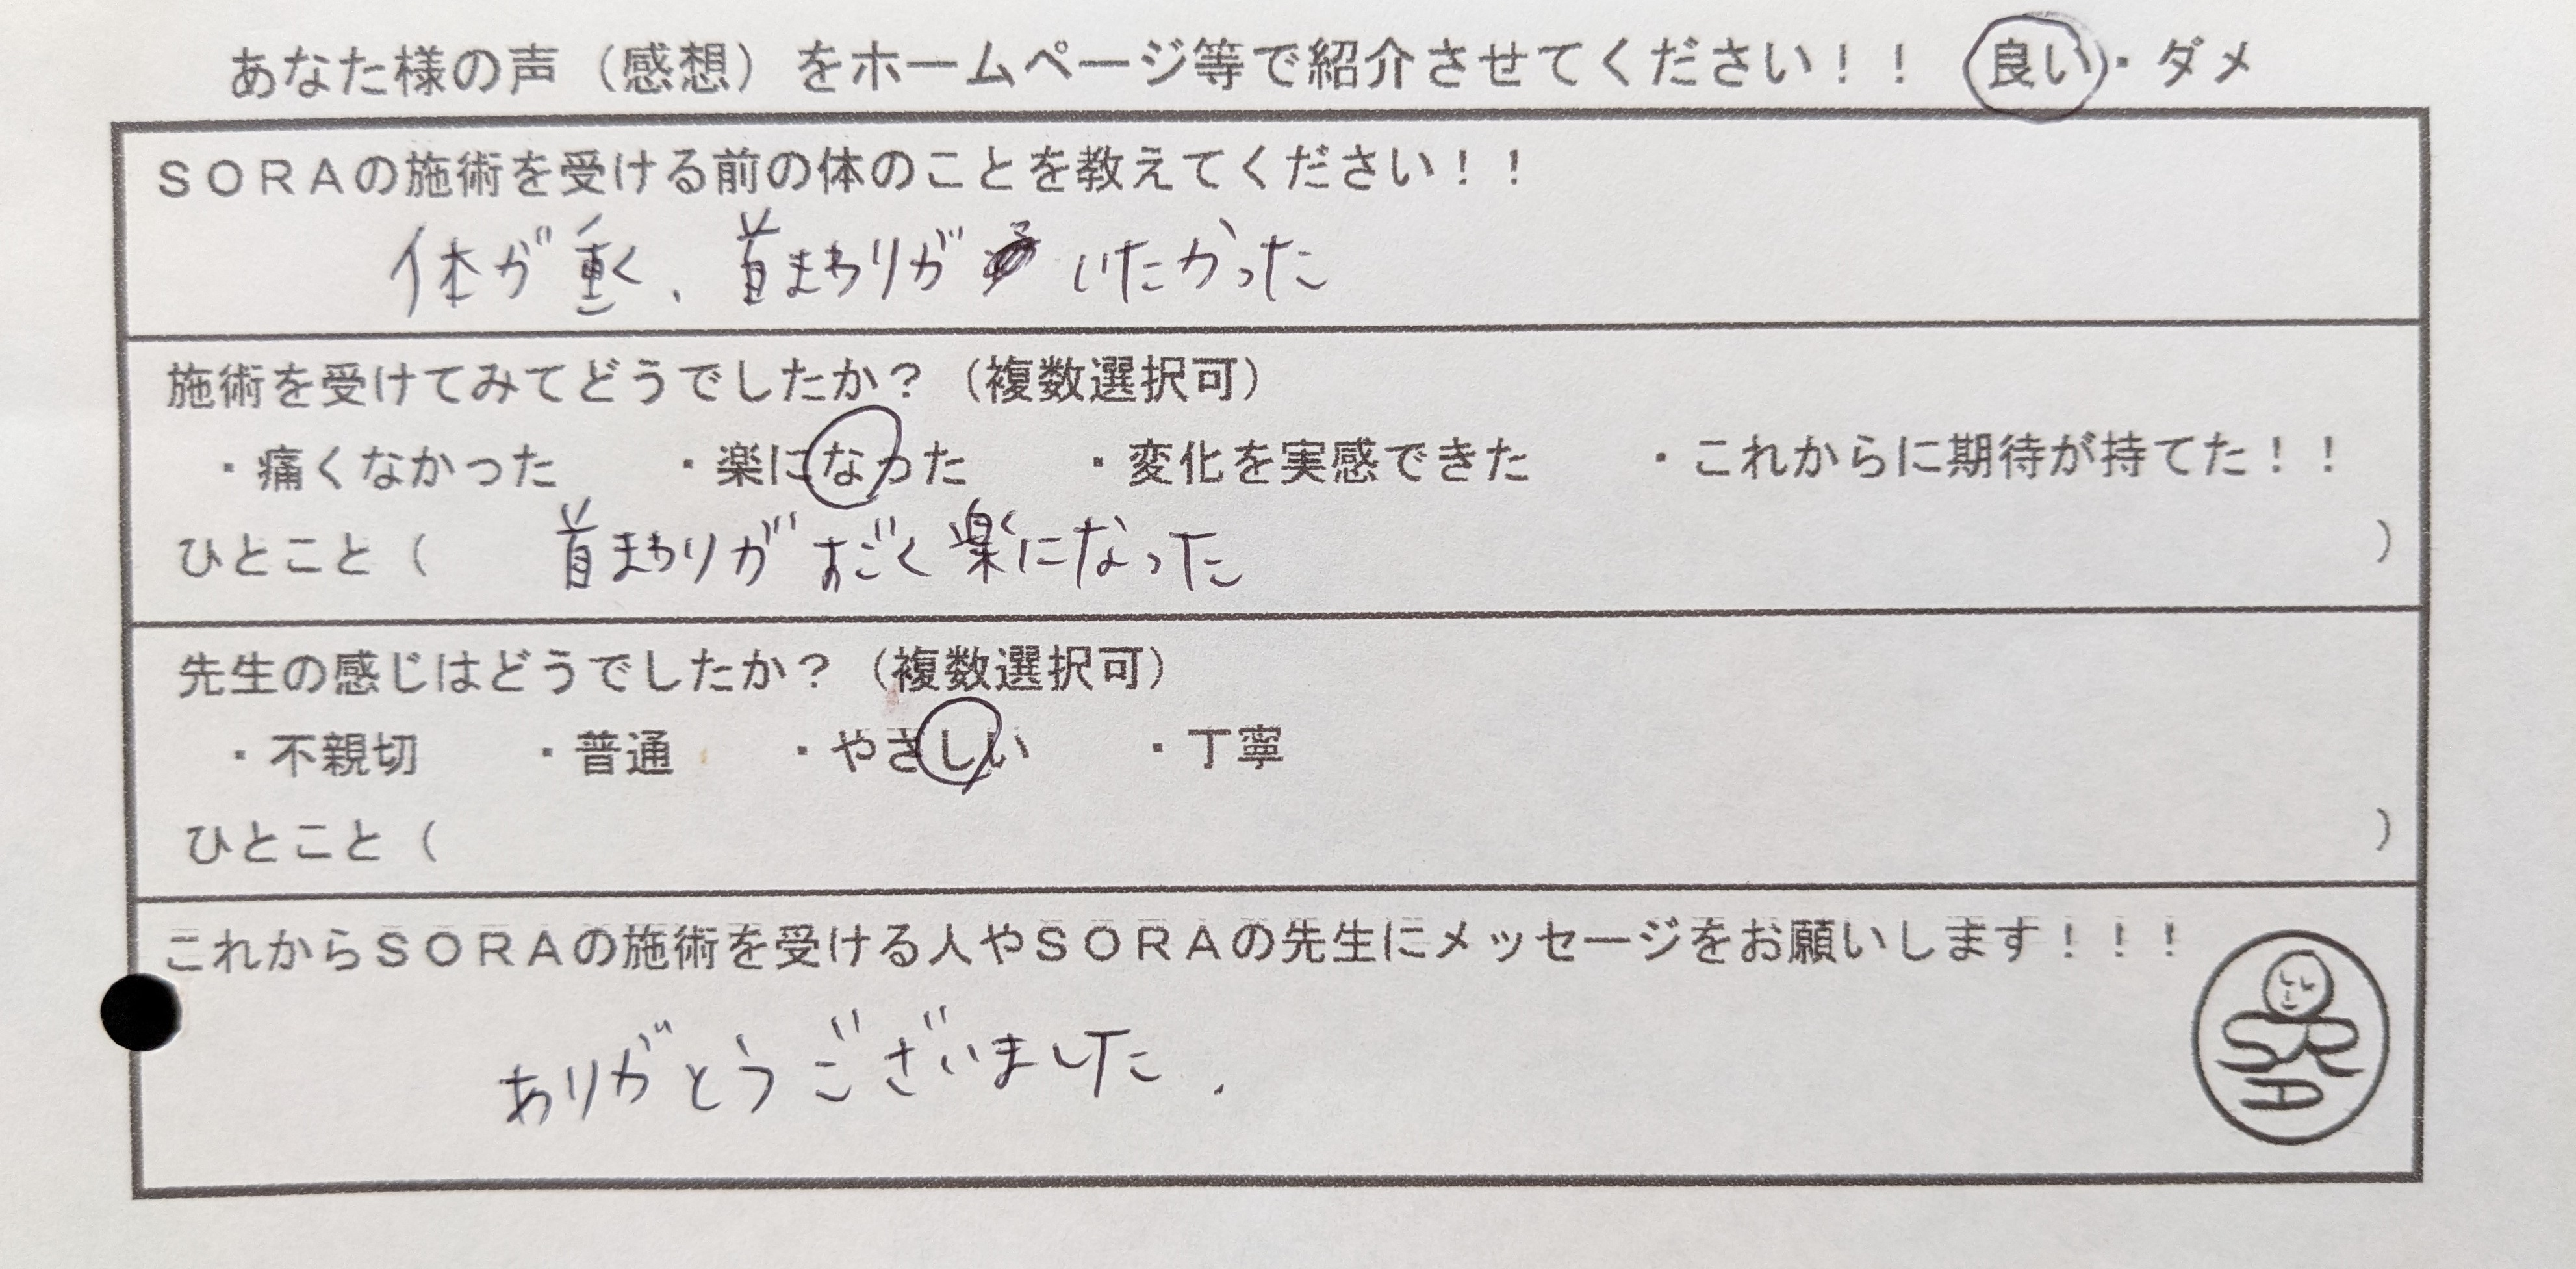 あなた様の声（感想）をホームページ等で紹介させてください！！　良い・ダメ
ＳＯＲＡの施術を受ける前の体のことを教えてください！！
体が重く、首まわりが いたかった
施術を受けてみてどうでしたか？（複数選択可）
・痛くなかった　・楽になった　・変化を実感できた　・これからに期待が持てた！！
ひとこと（　首まわりがすごく楽になった　）
先生の感じはどうでしたか？（複数選択可）
・不親切　・普通　・やさしい　・丁寧
ひとこと（　）
これからＳＯＲＡの施術を受ける人やＳＯＲＡの先生にメッセージをお願いします！！！
ありがとうございました.
SORA